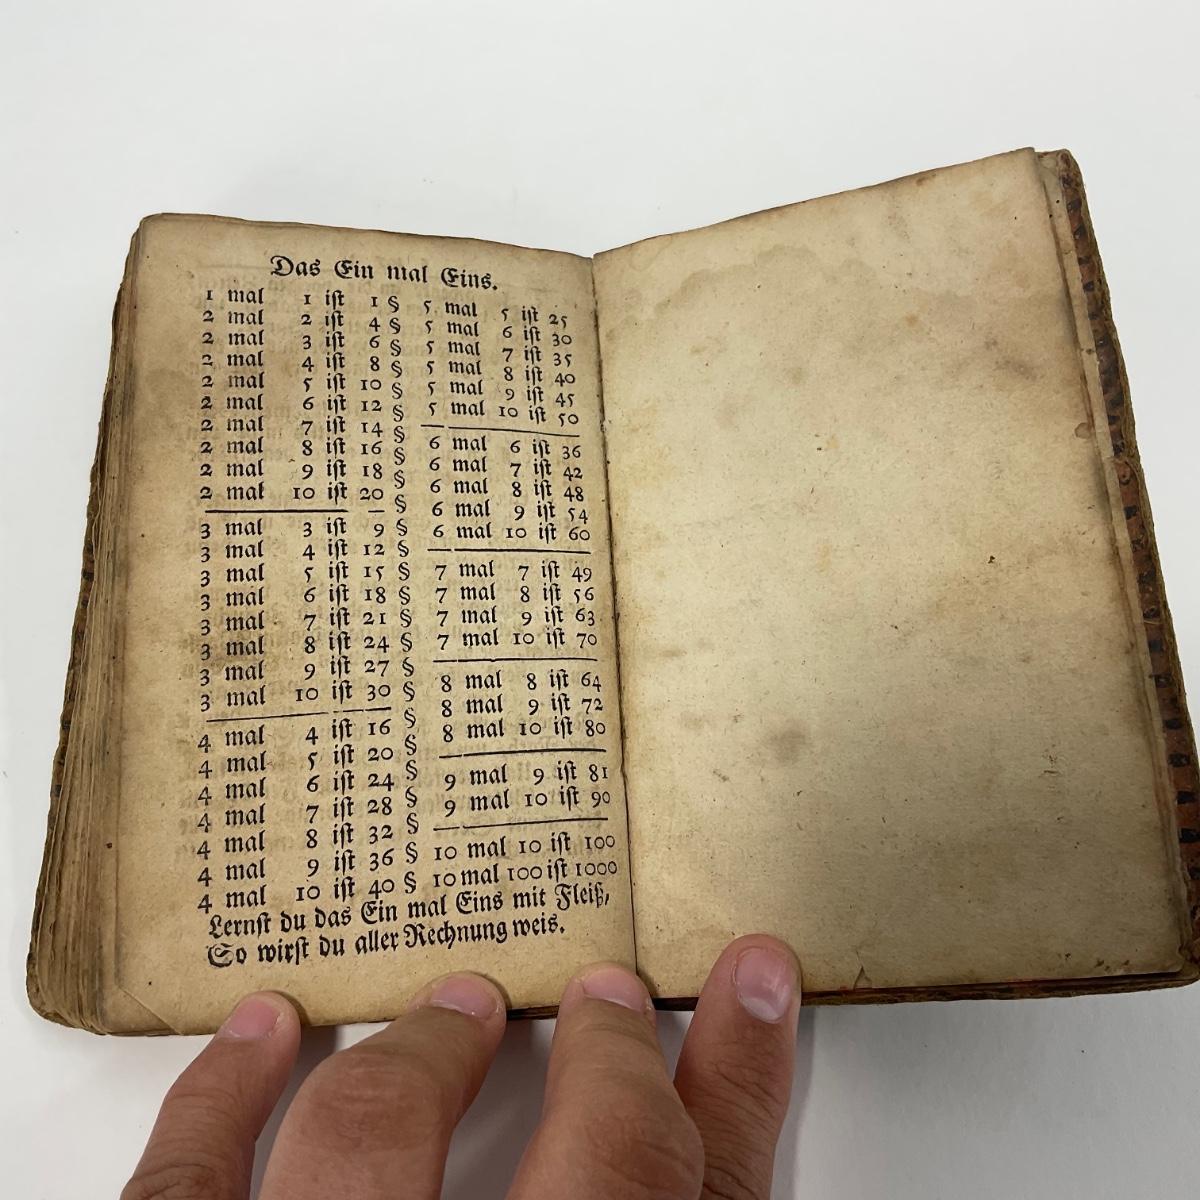 Das Ein mal Eins.
1 mal 1 ist 1 §
2 mal 2 ist 4 §
2 mal 3 ist 6 §
2 mal 4 ist 8 §
2 mal 5 ist 10 §
2 mal 6 ist 12 §
2 mal 7 ist 14 §
2 mal 8 ist 16 §
2 mal 9 ist 18 §
2 mal 10 ist 20 §
3 mal 3 ist 9 §
3 mal 4 ist 12 §
3 mal 5 ist 15 §
3 mal 6 ist 18 §
3 mal 7 ist 21 §
3 mal 8 ist 24 §
3 mal 9 ist 27 §
3 mal 10 ist 30 §
4 mal 4 ist 16 §
4 mal 5 ist 20 §
4 mal 6 ist 24 §
4 mal 7 ist 28 §
4 mal 8 ist 32 §
4 mal 9 ist 36 §
4 mal 10 ist 40 §
5 mal 5 ist 25
5 mal 6 ist 30
5 mal 7 ist 35
5 mal 8 ist 40
5 mal 9 ist 45
5 mal 10 ist 50
6 mal 6 ist 36
6 mal 7 ist 42
6 mal 8 ist 48
6 mal 9 ist 54
6 mal 10 ist 60
7 mal 7 ist 49
7 mal 8 ist 56
7 mal 9 ist 63
7 mal 10 ist 70
8 mal 8 ist 64
8 mal 9 ist 72
8 mal 10 ist 80
9 mal 9 ist 81
9 mal 10 ist 90
10 mal 10 ist 100
10 mal 100 ist 1000
Lernst du das Ein mal Eins mit Fleiß,
So wirst du aller Rechnung weis.